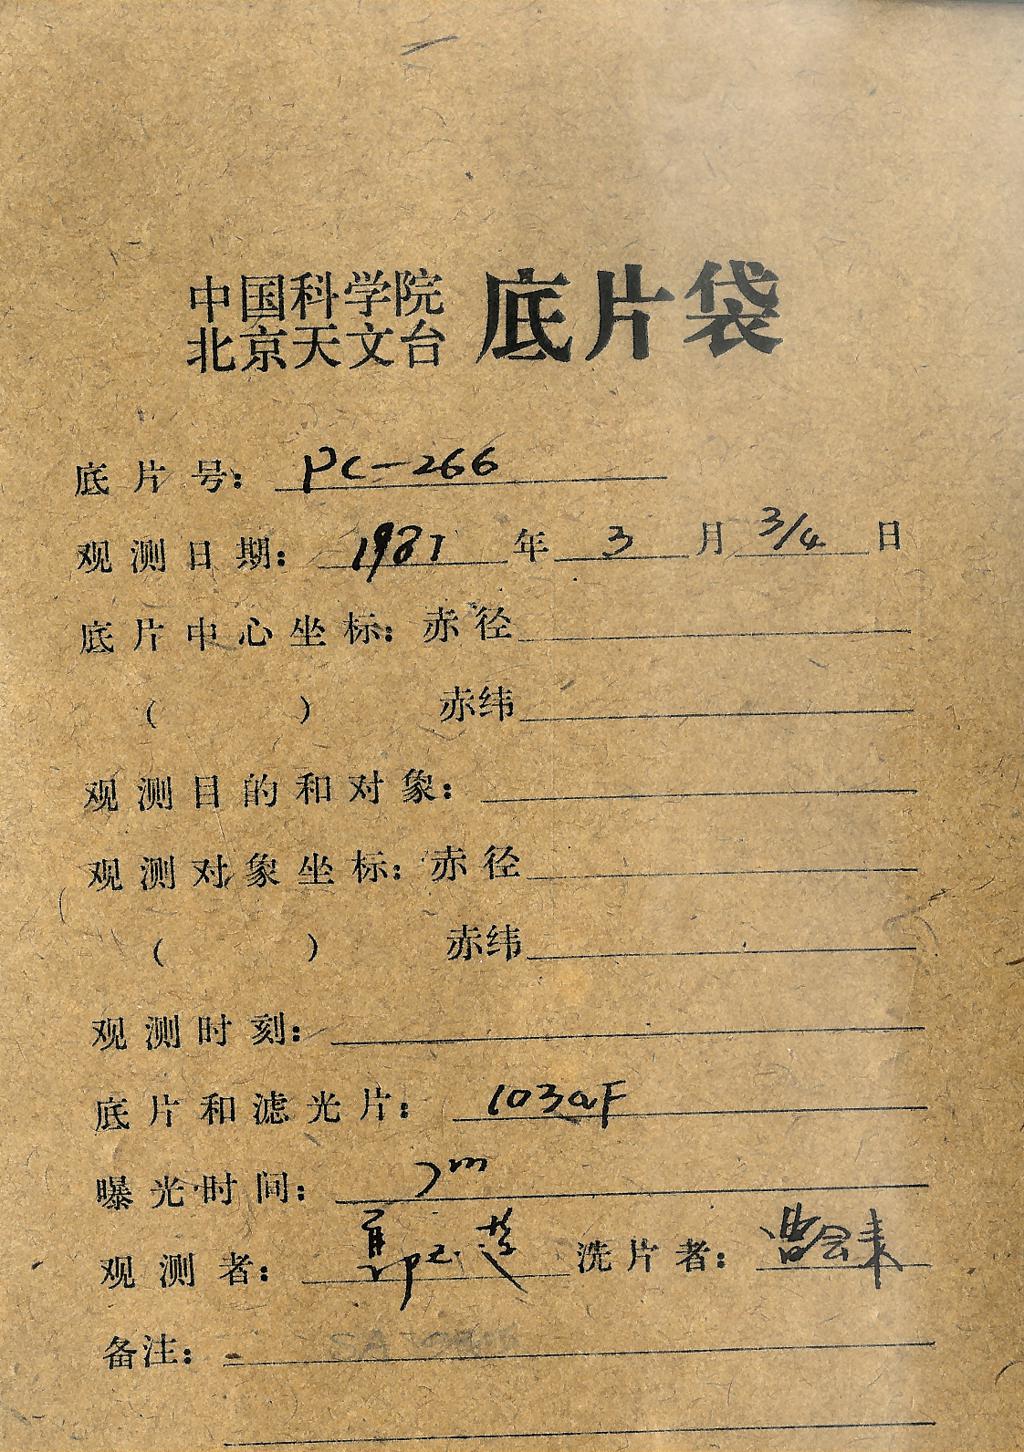 中国科学院
北京天文台 底片袋
底片号: PC-266
观测日期: 1987 年 3 月 3/4 日
底片中心坐标: 赤径
( ) 赤纬
观测目的和对象:
观测对象坐标: 赤径
( ) 赤纬
观测时刻:
底片和滤光片: 103aF
曝光时间: 7m
观测者: 洗片者:
备注: